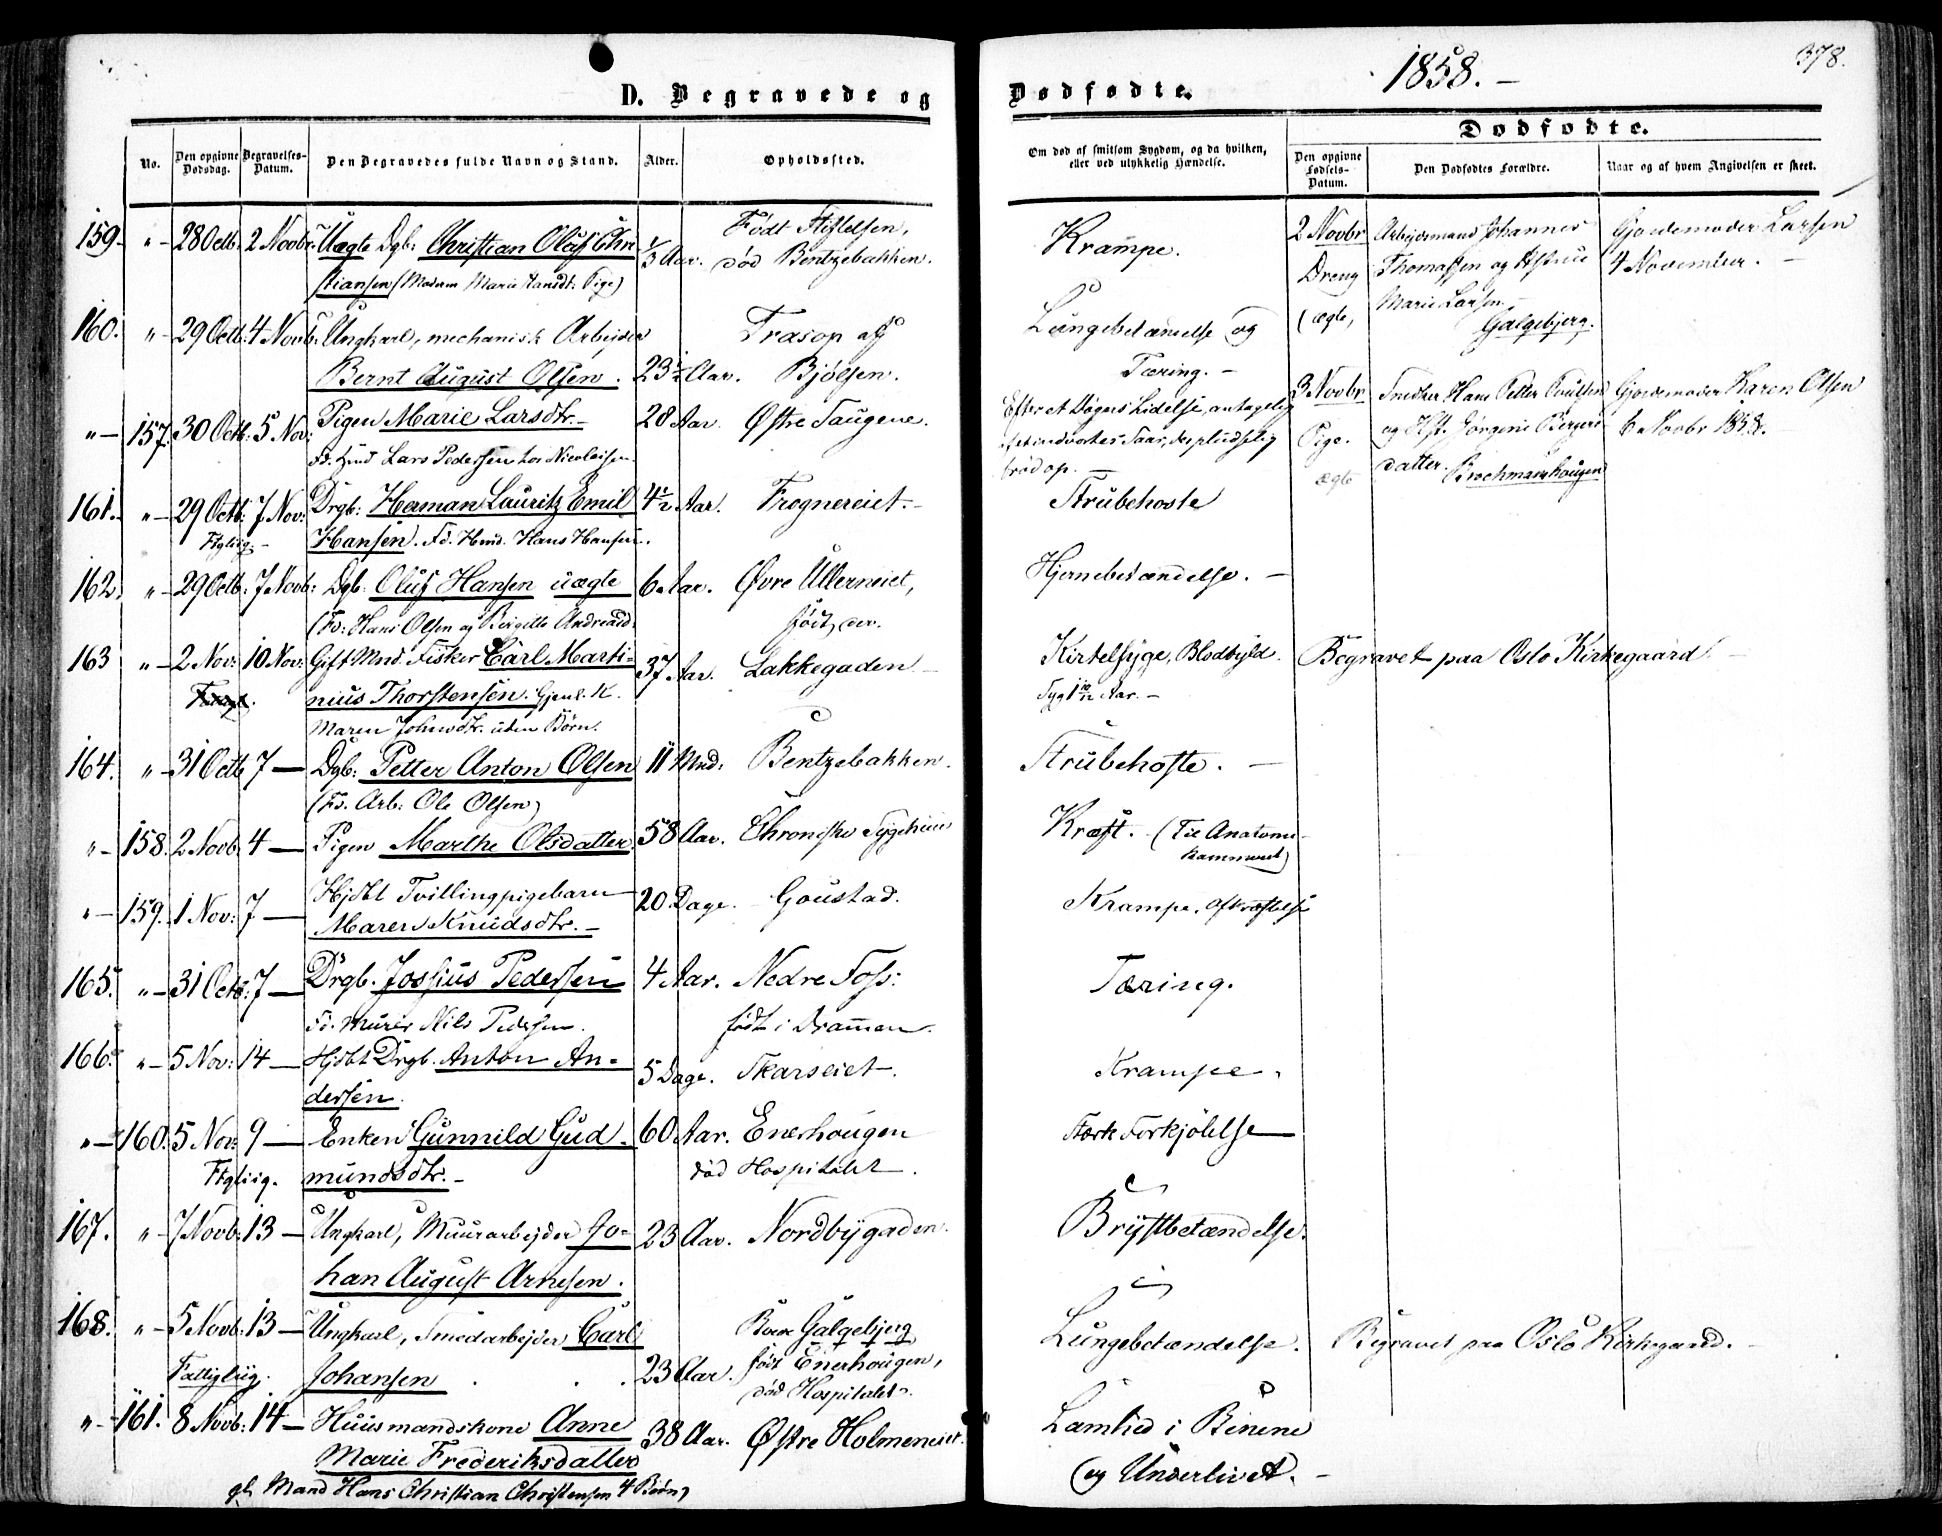 D. Begravede og
No.
Den opgivne Dødsdag.
Begravelses-Datum.
Den Begravedes fulde Navn og Stand.
Alder.
Opholdssted.
159. „ 28 Octb: 2 Novbr: Uægte Dgb: Christian Oluf Chri
stiansen (Moderen Marie Pige) ⅓ Aar. Født Stiftelsen,
død Bentzebakken.
160. „ 29 Octb: 4 Novb: Ungkarl, mechanisk Arbeider
Bernt August Olsen. 23½ Aar. Trasop af
Bjølsen.
„ 157. 30 Octb: 5 Nov: Pigen Marie Larsdtr. 28 Aar. Østre Taugene.
Fd. Hmd Lars Pedersen hos Nicolaisen
161. „ 29 Octb: 7 Nov: Drgb: Herman Lauritz Emil 4½ Aar. Frognereiet.
Ftglig. Hansen. Fd. Hmd. Hans Hansen.
162. „ 29 Octb: 7 Novb: Dgb: Oluf Hansen uægte 6 Aar. Øvre Ullerneiet,
(Fd: Hans Olsen og Birgitte Andreasd: født der.
163 „ 2 Nov: 10 Nov: Gift Mnd. Fisker Carl Marti-
nius Thorstensen. Gjenl. K. 37 Aar. Lakkegaden
Maren Johnsdtr. uden Børn.
164. „ 31 Octb 7 — Dgb: Petter Anton Olsen 11 Mnd: Bentzebakken.
(Fd. Arb: Ole Olsen)
„ 158. 2 Novb: 4 — Pigen Marthe Olsdatter. 58 Aar. Chroniske Sygehuus
„ 159. 1 Nov: 7 — Hjdbt Tvillingpigebarn
Maren Knudsdtr. 20 Dage. Goustad.
165. „ 31 Octb: 7 — Drgb. Josfius Pedersen 4 Aar. Nedre Foss:
Fd. Murer Nils Pedersen. født i Drammen.
166. „ 5 Nov: 14 — Hjdbt Drgb. Anton An-
dersen. 5 Dage. Skarseiet.
„ 160. 5 Nov: 9 — Enken Gunnild Gud- 60 Aar. Enerhougen
Ftglig. mundsdtr. død Hospitalet.
167. „ 7 Novb: 13 — Ungkarl, Muurarbeider Jo-
han August Arnesen. 23 Aar. Nordbygaden.
168. „ 5 Novb: 13 — Ungkarl, Smedarbeider Carl Boede Galgebjerg
Fattiglig. Johansen 23 Aar. født Enerhougen,
død Hospitalet.
„ 161. 8 Novb: 14 — Huusmandskone Anne
Marie Frederiksdatter 38 Aar. Østre Holmeneiet.
gl. Mand Hans Christian Christensen 4 Børn)
378.
1858. —
Dødfødte.
Om død af smitsom Sygdom, og da hvilken, eller ved ulykkelig Hændelse.
Dødfødte.
Den opgivne Fødsels-Datum.
Den Dødfødtes Forældre.
Naar og af hvem Angivelsen er skeet.
Krampe.
2 Novbr
Dreng
(ægte,
Arbejdsmand Johannes
Thomassen og Hstrue
Marie Larsen
Galgebjerg.
Gjordemoder Larsen
4 November.
Lungebetændelse og
Tæring.
Efter et Døgns Lidelse, antagelig
af et indvortes Saar, der pludselig
brød op.
3 Novbr
Pige.
ægte
Snedker Hans Petter Poulsen
og Hst. Jørgine Berger
datter. Brochmanshougen
Gjordemoder Karen Olsen
6 Novbr 1858.
Strubehoste
Hjernebetændelse.
Kirtelsyge, Blodbyld.
Syg 1 10/12 Aar.
Begravet paa Oslo Kirkegaard
Strubehoste.
Kræft. (Til Anatomi-
kammeret)
Krampe. Afkræftelse
Tæring.
Krampe.
Stærk Forkjølelse
Brystbetændelse.
Lungebetændelse. Begravet paa Oslo Kirkegaard.
Lamhed i Benene
og Underlivet.